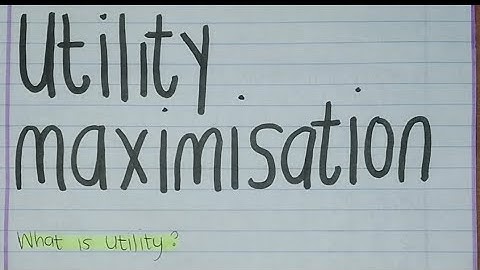 Utility
maximisation
What is utility?